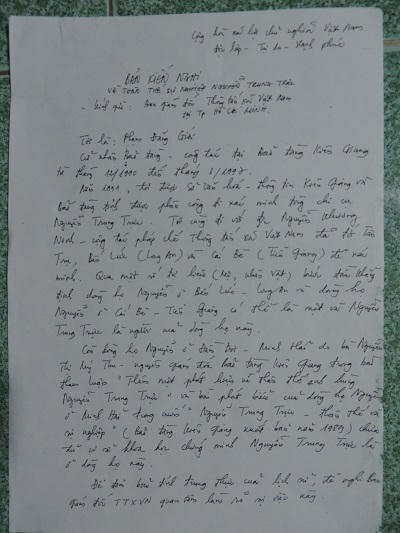 Cộng hòa xã hội chủ nghĩa Việt Nam
Độc lập - Tự do - Hạnh phúc
BẢN KIẾN NGHỊ
VỀ THÂN THẾ SỰ NGHIỆP NGUYỄN TRUNG TRỰC
- Kính gửi: Ban giám đốc Thông tấn xã Việt Nam
tại Tp HỒ CHÍ MINH.
Tôi là: Phan Đăng
Cử nhân Bảo tàng - công tác tại Bảo tàng Kiên Giang
từ tháng 12/1990 đến tháng 8/1997.
Năm 1991, tôi được Sở Văn hóa - thông tin Kiên Giang và
Bảo tàng tỉnh được phân công đi xác minh dòng chi cụ
Nguyễn Trung Trực. Tôi cùng đi với Nguyễn Khương
Ninh - công tác Thông tấn xã Việt Nam đã tới Tân
Trụ, Bến Lức (Long An) và Cái Bè (Tiền Giang) để xác
minh. Qua một số tư liệu (Mộ, nhân vật) bước đầu khẳng
định dòng họ Nguyễn ở Bến Lức - Long An và dòng họ
Nguyễn ở Cái Bè - Tiền Giang có thể là một và Nguyễn
Trung Trực là người của dòng họ này.
Còn dòng họ Nguyễn ở Đầm Dơi - Minh Hải do bà Nguyễn
Thị Mỹ - nguyên giám đốc Bảo tàng Kiên Giang trong bài
tham luận "Thêm một phát hiện về thân thế anh hùng
Nguyễn Trung Trực" và bài phát biểu của dòng họ Nguyễn
ở Minh Hải trong cuốn "Nguyễn Trung Trực - thân thế và
sự nghiệp" (Bảo tàng Kiên Giang xuất bản năm 1989) chưa
đủ cơ sở khoa học chứng minh Nguyễn Trung Trực là
ở dòng họ này.
Để đảm bảo tính trung thực của lịch sử, đề nghị Ban
giám đốc TTXVN quan tâm làm rõ sự việc này.